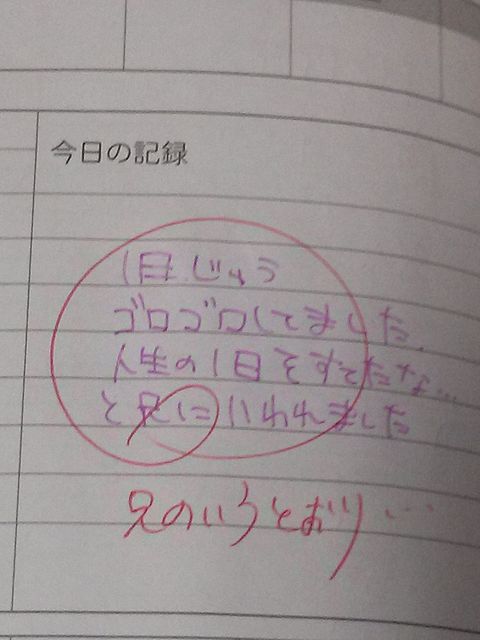 今日の記録
1日じゅう
ゴロゴロしてました.
人生の1日をすてたな…
と兄にいわれました
兄のいうとおり…